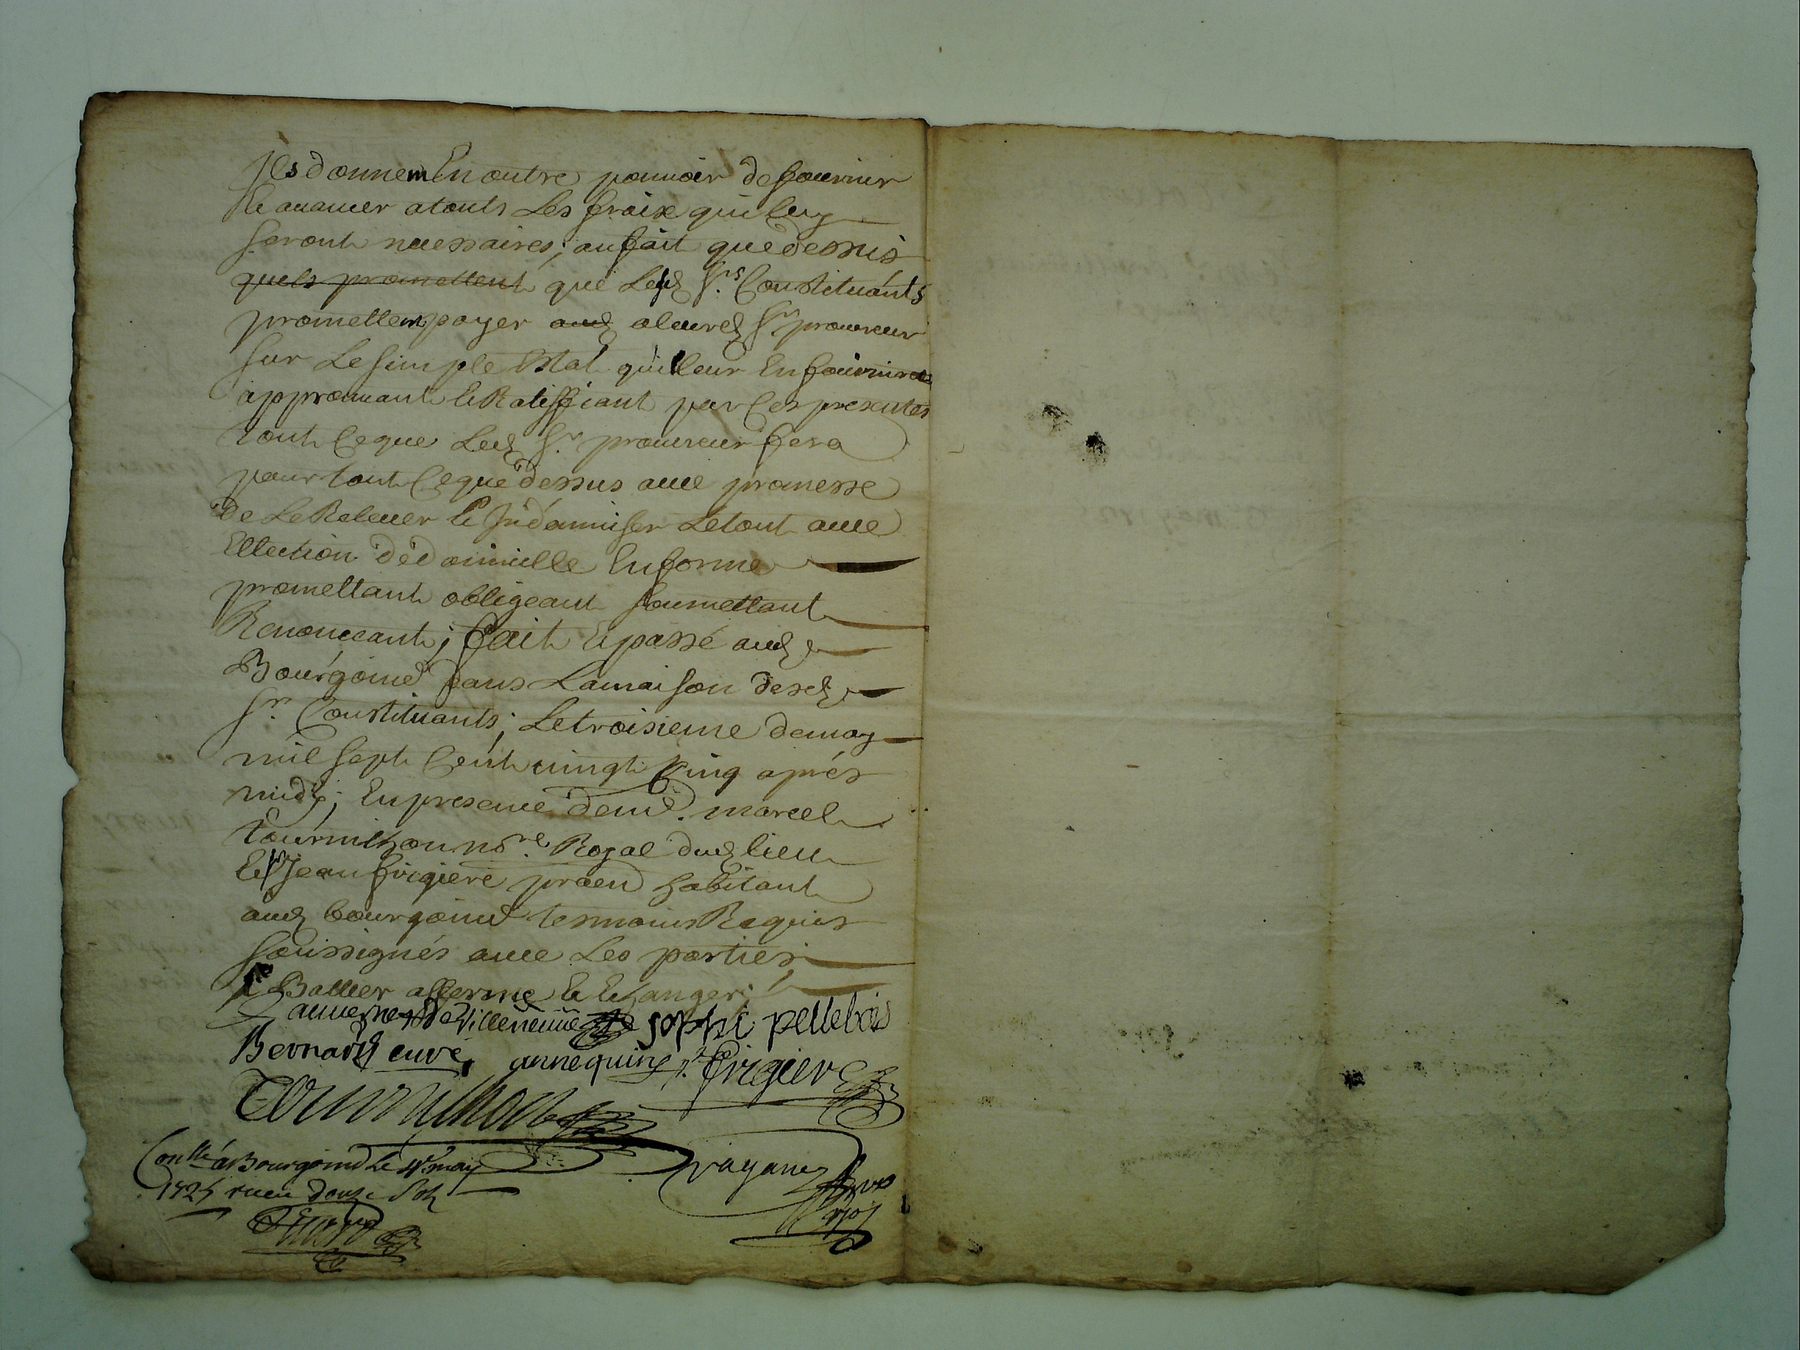 Ils donnent En outre pouuoir de fournir
Et auancer a touts Les fraix qui luy
seront necessaires; au fait que dessus
quels promettent que Lesd srs Constituants
promettent payer aud a leurd sr procureur
sur Le simple Estat quil leur En fournira
approuuant Et Ratiffiant par Ces presentes
tout Ce que Led sr procureur fera
pour tout Ce que dessus auec promesse
de Le Releuer Et Indamniser Le tout auec
Ellection de domicille En forme
promettant obligeant soumettant
Renonceant; fait Et passé aud
Bourgoind dans La maison desd
srs Constituants; Le troisieme de may
mil sept Cent vingt Cinq aprés
midy; En presence de me. marcel
tournichon nore. Royal dud lieu
Et sr Jean frigiere praen habitant
aud bourgoind tesmoins Requis
soussignés auec Les parties
auuergne de Villeneuue sophi pellebois
Bernard curé, annequin J. frigiere
Tournichon
Conllé a Bourgoind Le 4e may
1725 receu douze sols